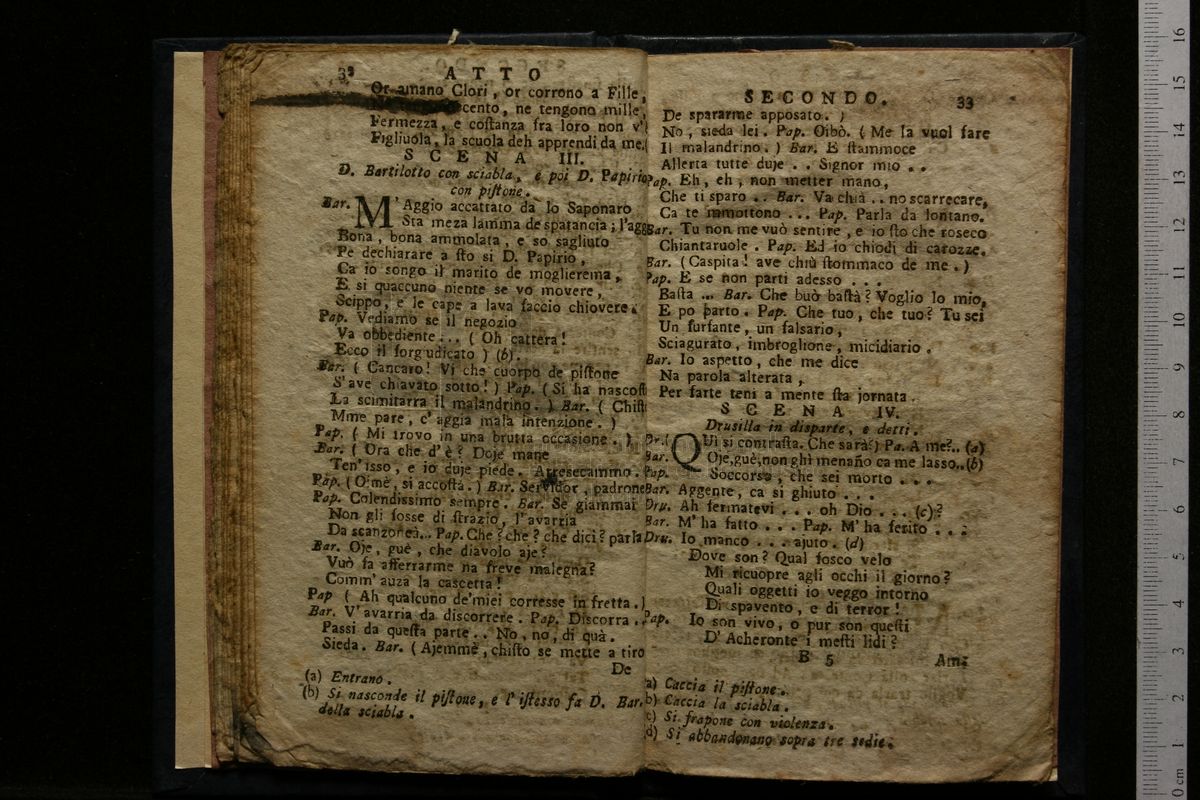 ATTO
Or amano Clori, or corrono a Fille,
cento, ne tengono mille,
Fermezza, e costanza fra loro non v'
Figliuola, la scuola deh apprendi da me.
SCENA III.
D. Bartilotto con sciabla, e poi D. Papirio
con pistone.
Bar. M'Aggio accattato da lo Saponaro
Sta meza lamma de spatancia; l'agg
Bona, bona ammolata, e so sagliuto
Pe dechiarare a sto si D. Papirio,
Ca io songo il marito de moglierema,
E si quaccuno niente se vo movere,
Scippo, e le cape a lava faccio chiovere.
Pap. Vediamo se il negozio
Va obbediente... (Oh cattera!
Ecco il forgiudicato) (b).
Bar. (Cancaro! Vi che cuorpo de pistone
S'ave chiavato sotto!) Pap. (Si ha nascost
La scimitarra il malandrino.) Bar. (Chist
Mme pare, c'aggia mala intenzione.)
Pap. (Mi trovo in una brutta occasione.)
Bar. (Ora che d'è? Doje mane
Ten'isso, e io duje piede. Arresecammo.
Pap. (Oimè, si accosta.) Bar. Servidor, padrone
Pap. Colendissimo sempre. Bar. Se giammai
Non gli fosse di strazio, l'avarria
Da scanzonea.. Pap. Che? che? che dici? parla
Bar. Oje, guè, che diavolo aje?
Vuò fa afferrarme na freve malegna?
Comm'auza la cascetta!
Pap (Ah qualcuno de'miei corresse in fretta.)
Bar. V'avarria da discorrere. Pap. Discorra..
Passi da questa parte.. No, no, di quà.
Sieda. Bar. (Ajemmè, chisto se mette a tiro
De
(a) Entrano.
(b) Si nasconde il pistone, e l'istesso fa D. Bar.
della sciabla.
SECONDO. 33
De spararme apposato.)
No, sieda lei. Pap. Oibò. (Me la vuol fare
Il malandrino.) Bar. E stammoce
Allerta tutte duje.. Signor mio..
Pap. Eh, eh, non metter mano,
Che ti sparo.. Bar. Va chià.. no scarrecare,
Ca te mmottono... Pap. Parla da lontano.
Bar. Tu non me vuò sentire, e io sto che roseco
Chiantaruole. Pap. Ed io chiodi di carozze.
Bar. (Caspita! ave chiù stommaco de me.)
Pap. E se non parti adesso...
Basta... Bar. Che buò bastà? Voglio lo mio,
E po parto. Pap. Che tuo, che tuo? Tu sei
Un furfante, un falsario,
Sciagurato, imbroglione, micidiario.
Bar. Io aspetto, che me dice
Na parola alterata,
Per farte tenì a mente sta jornata.
SCENA IV.
Drusilla in disparte, e detti.
Dr. (QUì si contrasta. Che sarà?) Pa. A me?.. (a)
Bar. Oje, guè, non ghì menanno ca me lasso.. (b)
Pap. Soccorso, che sei morto...
Bar. Aggente, ca si ghiuto...
Dru. Ah fermatevi... oh Dio... (c)?
Bar. M'ha fatto... Pap. M'ha ferito...
Dru. Io manco... ajuto. (d)
Dove son? Qual fosco velo
Mi ricuopre agli occhi il giorno?
Quali oggetti io veggo intorno
Di spavento, e di terror!
Pap. Io son vivo, o pur son questi
D'Acheronte i mesti lidi?
B 5 Am-
a) Caccia il pistone.
b) Caccia la sciabla.
c) Si frapone con violenza.
d) Si abbandonano sopra tre sedie.